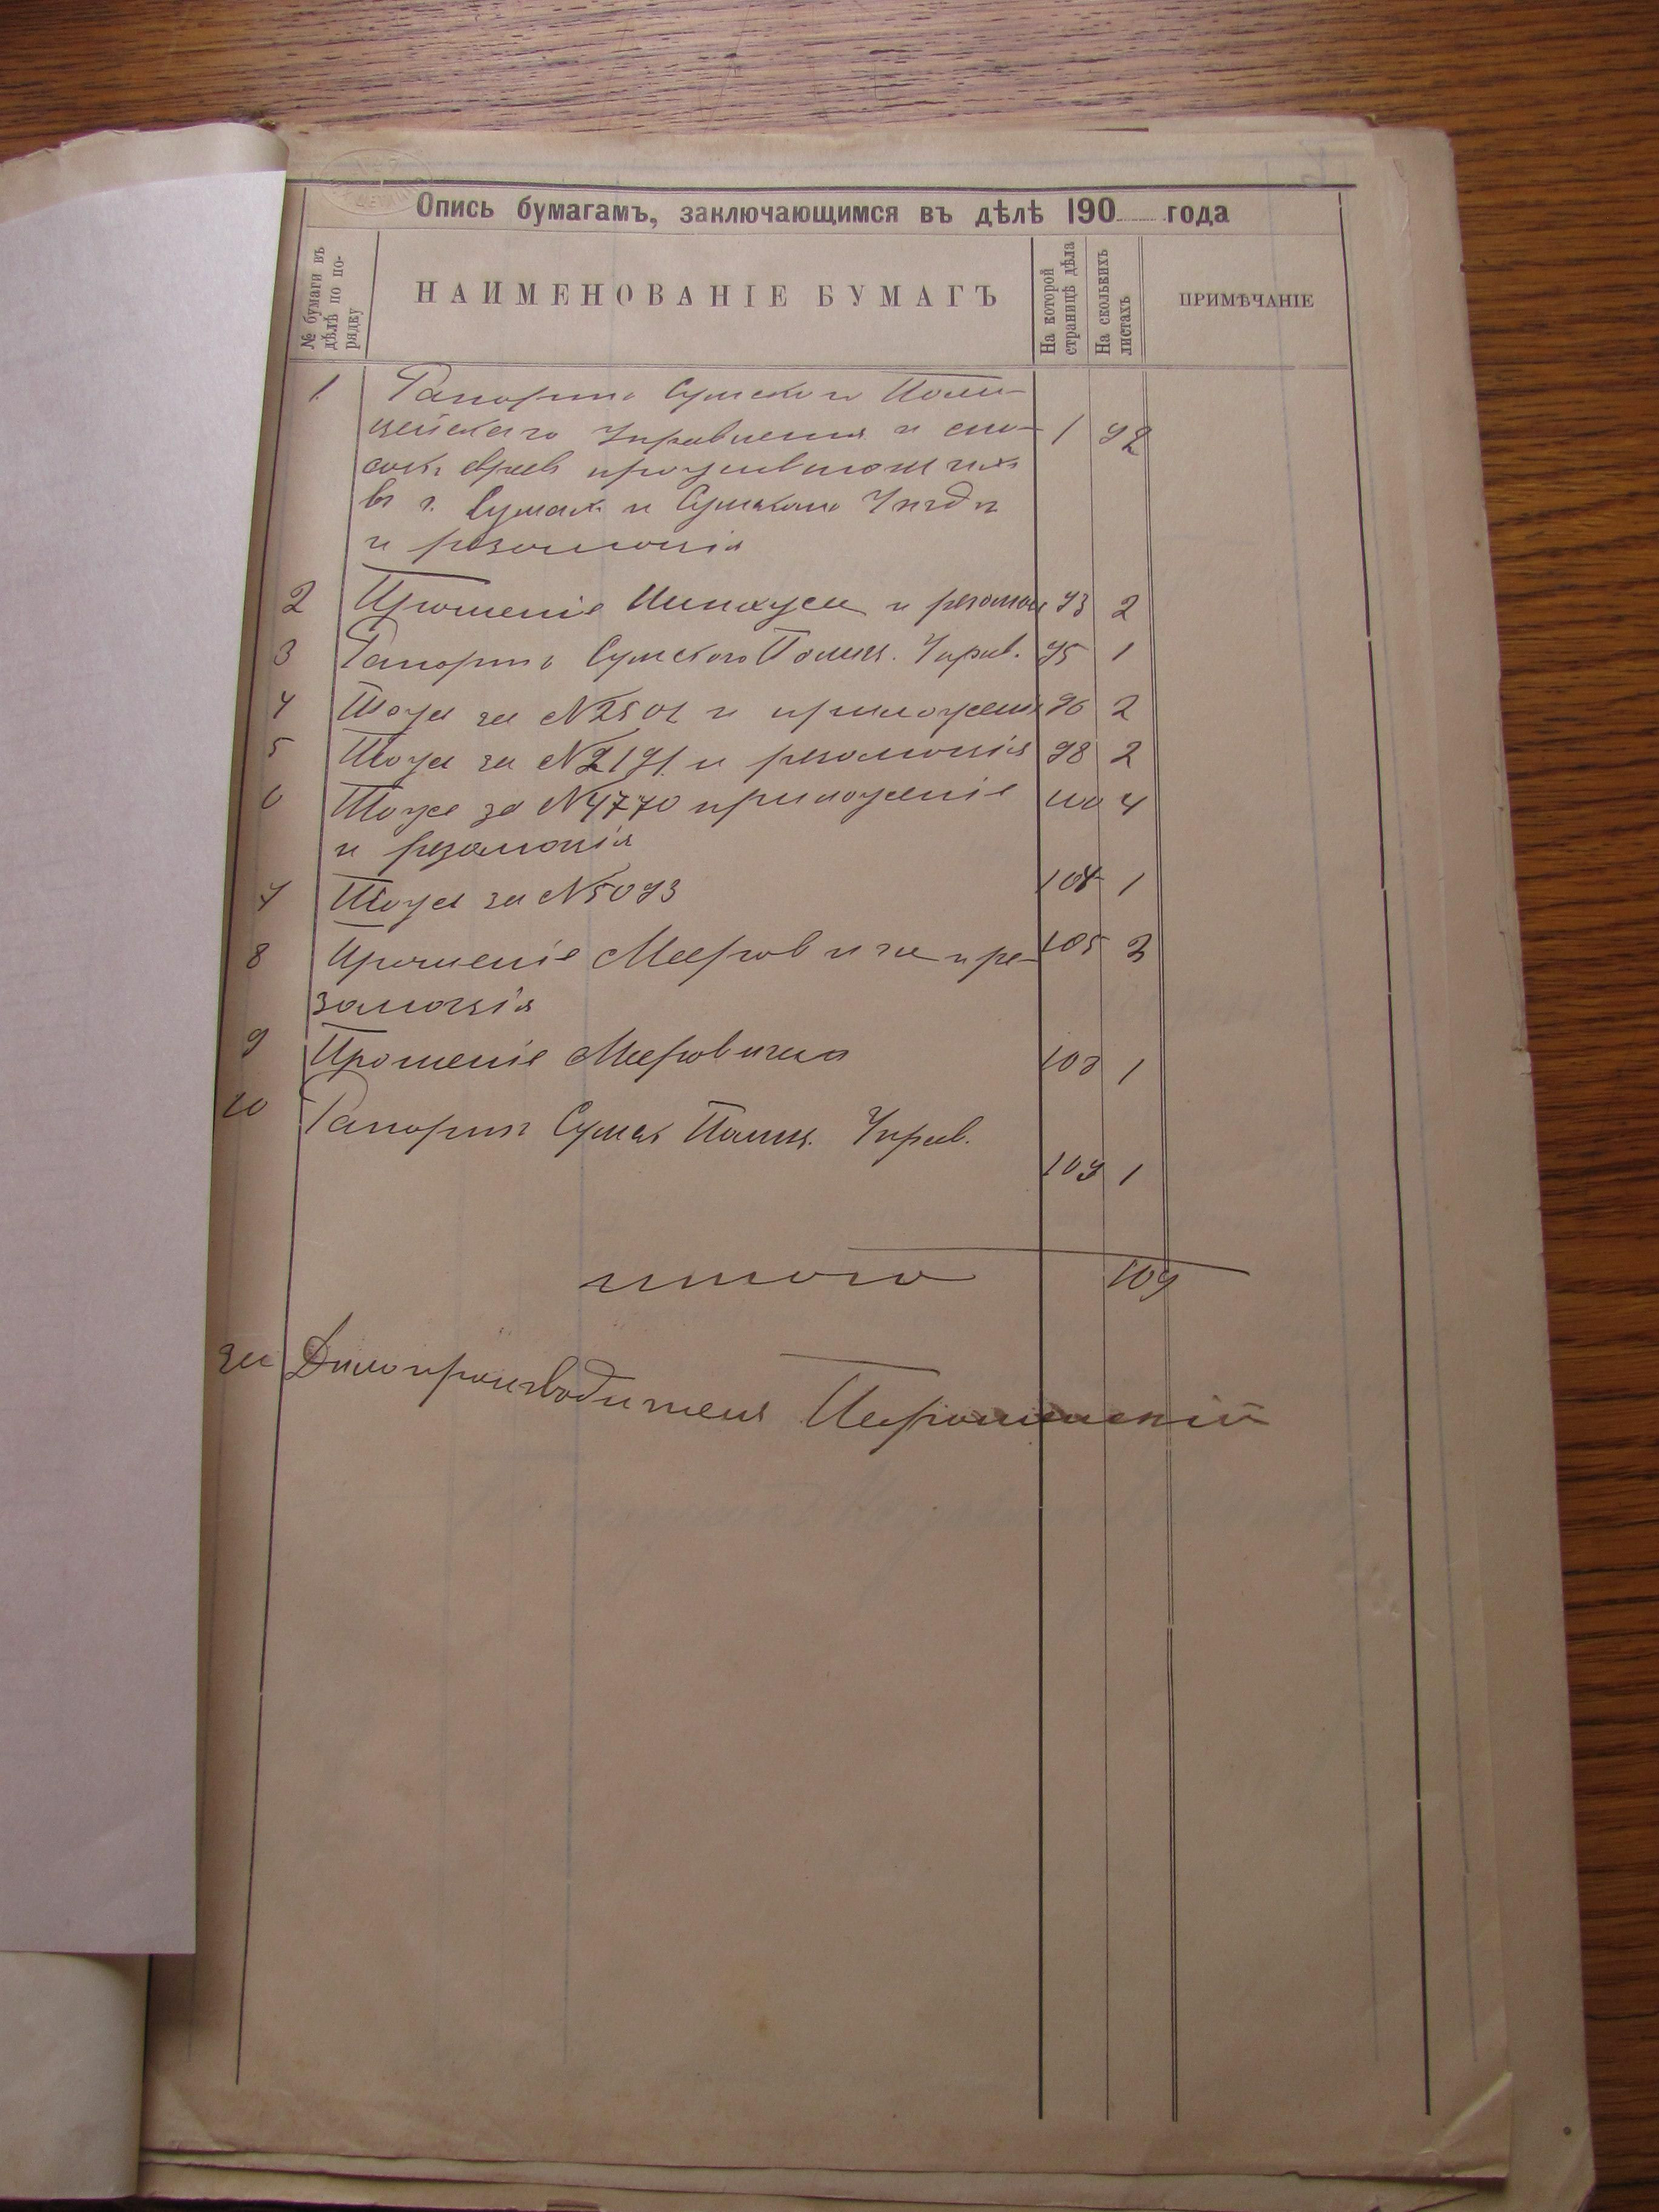 Опись бумагамъ, заключающимся въ дѣлѣ 190 года
№ бумаги въ дѣлѣ по порядку
НАИМЕНОВАНІЕ БУМАГЪ
На которой страницѣ дѣла
На сколькихъ листахъ
ПРИМѢЧАНІЕ
1. Рапортъ Сумского Поли-
цейскаго Управленія и спи- 1 92
сокъ евреев проживающихъ
въ г. Сумахъ и Сумскомъ Уѣздѣ
и резолюція
2 Прошеніе и резолюц 93 2
3 Рапортъ Сумского Полиц. Управ. 95 1
4 Тоже за №2501 и приложеніе 96 2
5 Тоже за №2191 и резолюція 98 2
6 Тоже за №4770 приложеніе 100 4
и резолюція
7 Тоже за №5093 104 1
8 Прошеніе Мееровича и ре- 105 2
золюція
9 Прошеніе Мееровича 108 1
10 Рапортъ Сумск Полиц. Управ.
109 1
итого 109
за Дѣлопроизводителя